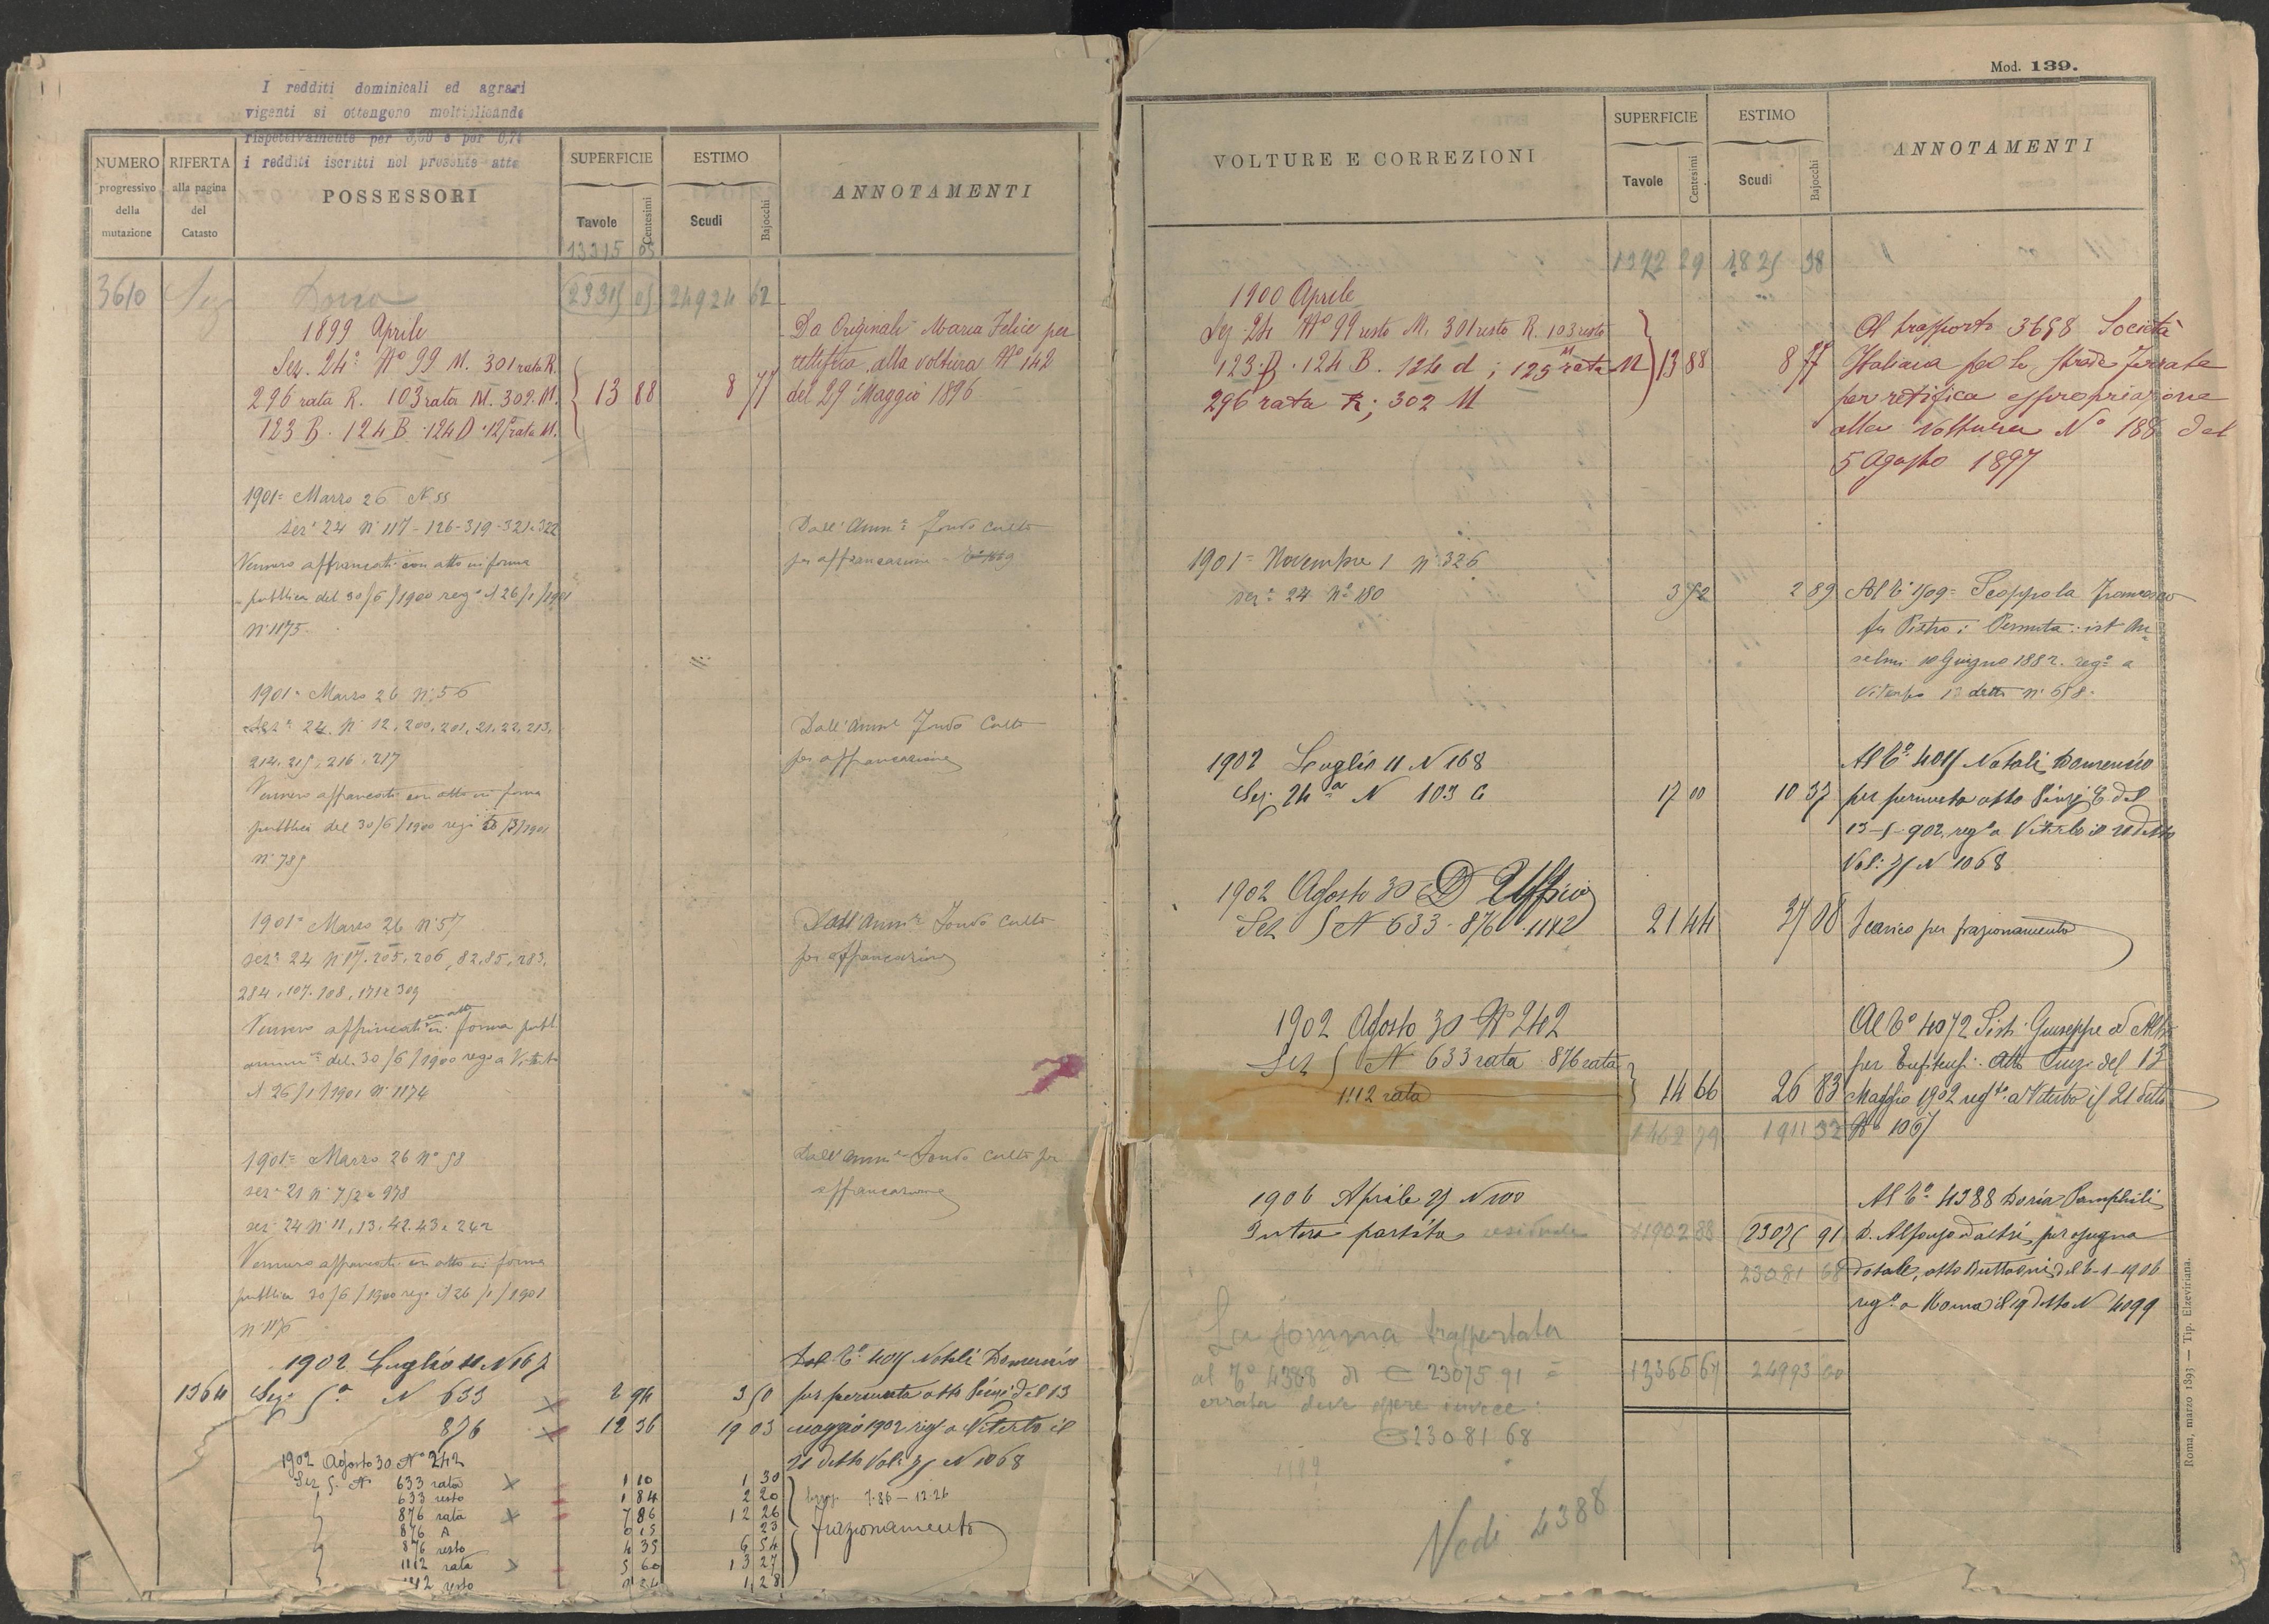 I redditi dominicali ed agrari
vigenti si ottengono moltiplicande
rispettivamente per 3,50 e per 0,7
i redditi iscritti nel presente atte
NUMERO
progressivo
della
mutazione
RIFERTA
alla pagina
del
Catasto
POSSESSORI
SUPERFICIE
Tavole
Centesimi
ESTIMO
Scudi
Bajocchi
ANNOTAMENTI
13315 05
3610
23315 05 24924 62
1899 Aprile
Sez. 24ª Nº 99 M. 301 rata R.
296 rata R. 103 rata M. 302. M.
123 B. 124 B. 124 D. 125 rata M.
13 88
8 77
Da Originali Maria Felice per
rettifica alla voltura Nº 142
del 29 Maggio 1896
1901= Marzo 26 N. 55
sezª 24 Nº 117-126-319-321-322
Vennero affrancati con atto in forma
pubblica del 30/6/1900 regº il 26/1/1901
Nº 1175.
Dall'Ammª Fondo Culto
per affrancazione
1901= Marzo 26 Nº 56
Sezª 24 Nº 12, 200, 201, 21, 22, 213,
214, 215, 216, 217
Vennero affrancati con atto in forma
pubblica del 30/6/1900
Nº 785
Dall'Ammª Fondo Culto
per affrancazione
1901= Marzo 26 Nº 57
sezª 24 Nº 17, 205, 206, 82, 85, 283,
284, 107, 108, 171 e 309
Vennero affrancati con atto in forma pubb.
del 30/6/1900 rego a Viterbo
il 26/1/1901 Nº 1174
Dall'Ammª Fondo Culto
per affrancazione
1901= Marzo 26 Nº 58
sezª 21 Nº 752 e 978
sezª 24 Nº 11, 13, 42, 43 e 242
Vennero affrancati con atto in forma
pubblica 30/6/1900 rego il 26/1/1901
Nº 1176
Dall'Ammª Fondo Culto per
affrancazione
1902 Luglio 11 N 167
1364 Sezª 5ª N 633
2 94
3 50
876
12 36
19 03
Dal Tº 4015 Natali Domenico
per permuta atto del 13
maggio 1902 regº a Viterbo il
21 detto Vol. 75 N 1068
1902 Agosto 30 Nº 242
Sez 5. Nº 633 rata 1 10 1 30
633 resto 1 84 2 20
876 rata 7 86 12 26
876 A 0 15 23
876 resto 4 35 6 54
1112 rata 5 60 13 27
1112 resto 1 28
7.86 - 12.26
Frazionamento
Mod. 139.
VOLTURE E CORREZIONI
SUPERFICIE
Tavole
Centesimi
ESTIMO
Scudi
Bajocchi
ANNOTAMENTI
1392 29 1825 38
1900 Aprile
Sez. 24 Nº 99 resto M. 301 resto R. 103 resto
123. B. 124 B. 124 d; 125 rata M
296 rata R; 302 M
13 88
8 77
Al trasporto 3698 Società
Italiana per le strade ferrate
per rettifica espropriazione
alla Voltura Nº 188 del
5 Agosto 1897
1901= Novembre 1 Nº 326
sezª 24 Nº 180
3 52
2 89
Al Tº 1509= Scoppola Francesco
fu Pietro: Permuta: ist An=
selmi 10 Giugno 1882. regº a
Viterbo detto Nº 658.
1902 Luglio 11 N 168
Sez. 24ª N 103 C
17 00
10 37
Al Tº 4015 Natali Domenico
per permuta atto del
13-5-902 regº a Viterbo il 21 detto
Vol. 75 N 1068
1902 Agosto 30 D'Ufficio
Sez 5 N 633. 876. 1112
21 44
37 08
Scarico per frazionamento
1902 Agosto 30 Nº 242
Sez 5 N 633 rata 876 rata
1112 rata
14 66
26 83
Al Tº 4072 Giuseppe ed Altri
per Enfiteusi. Atto del 13
Maggio 1902 regto a Viterbo il 21 detto
Nº 1067
1462 79 1911 32
1906 Aprile 25 N 100
Intera partita residuale
11902 88
23075 91
23081 68
Al Tº 4388 Doria Pamphili
D. Alfonso ed altri per assegno
dotale, atto Buttaoni del 6-1-1906
regº a Roma il 19 detto N 4099
La somma trasportata
al Tº 4388 di 23075 91 è
errata deve essere invece:
23081 68
13365 67 24993 00
Vedi 4388
Roma, marzo 1893 — Tip. Elzeviriana.